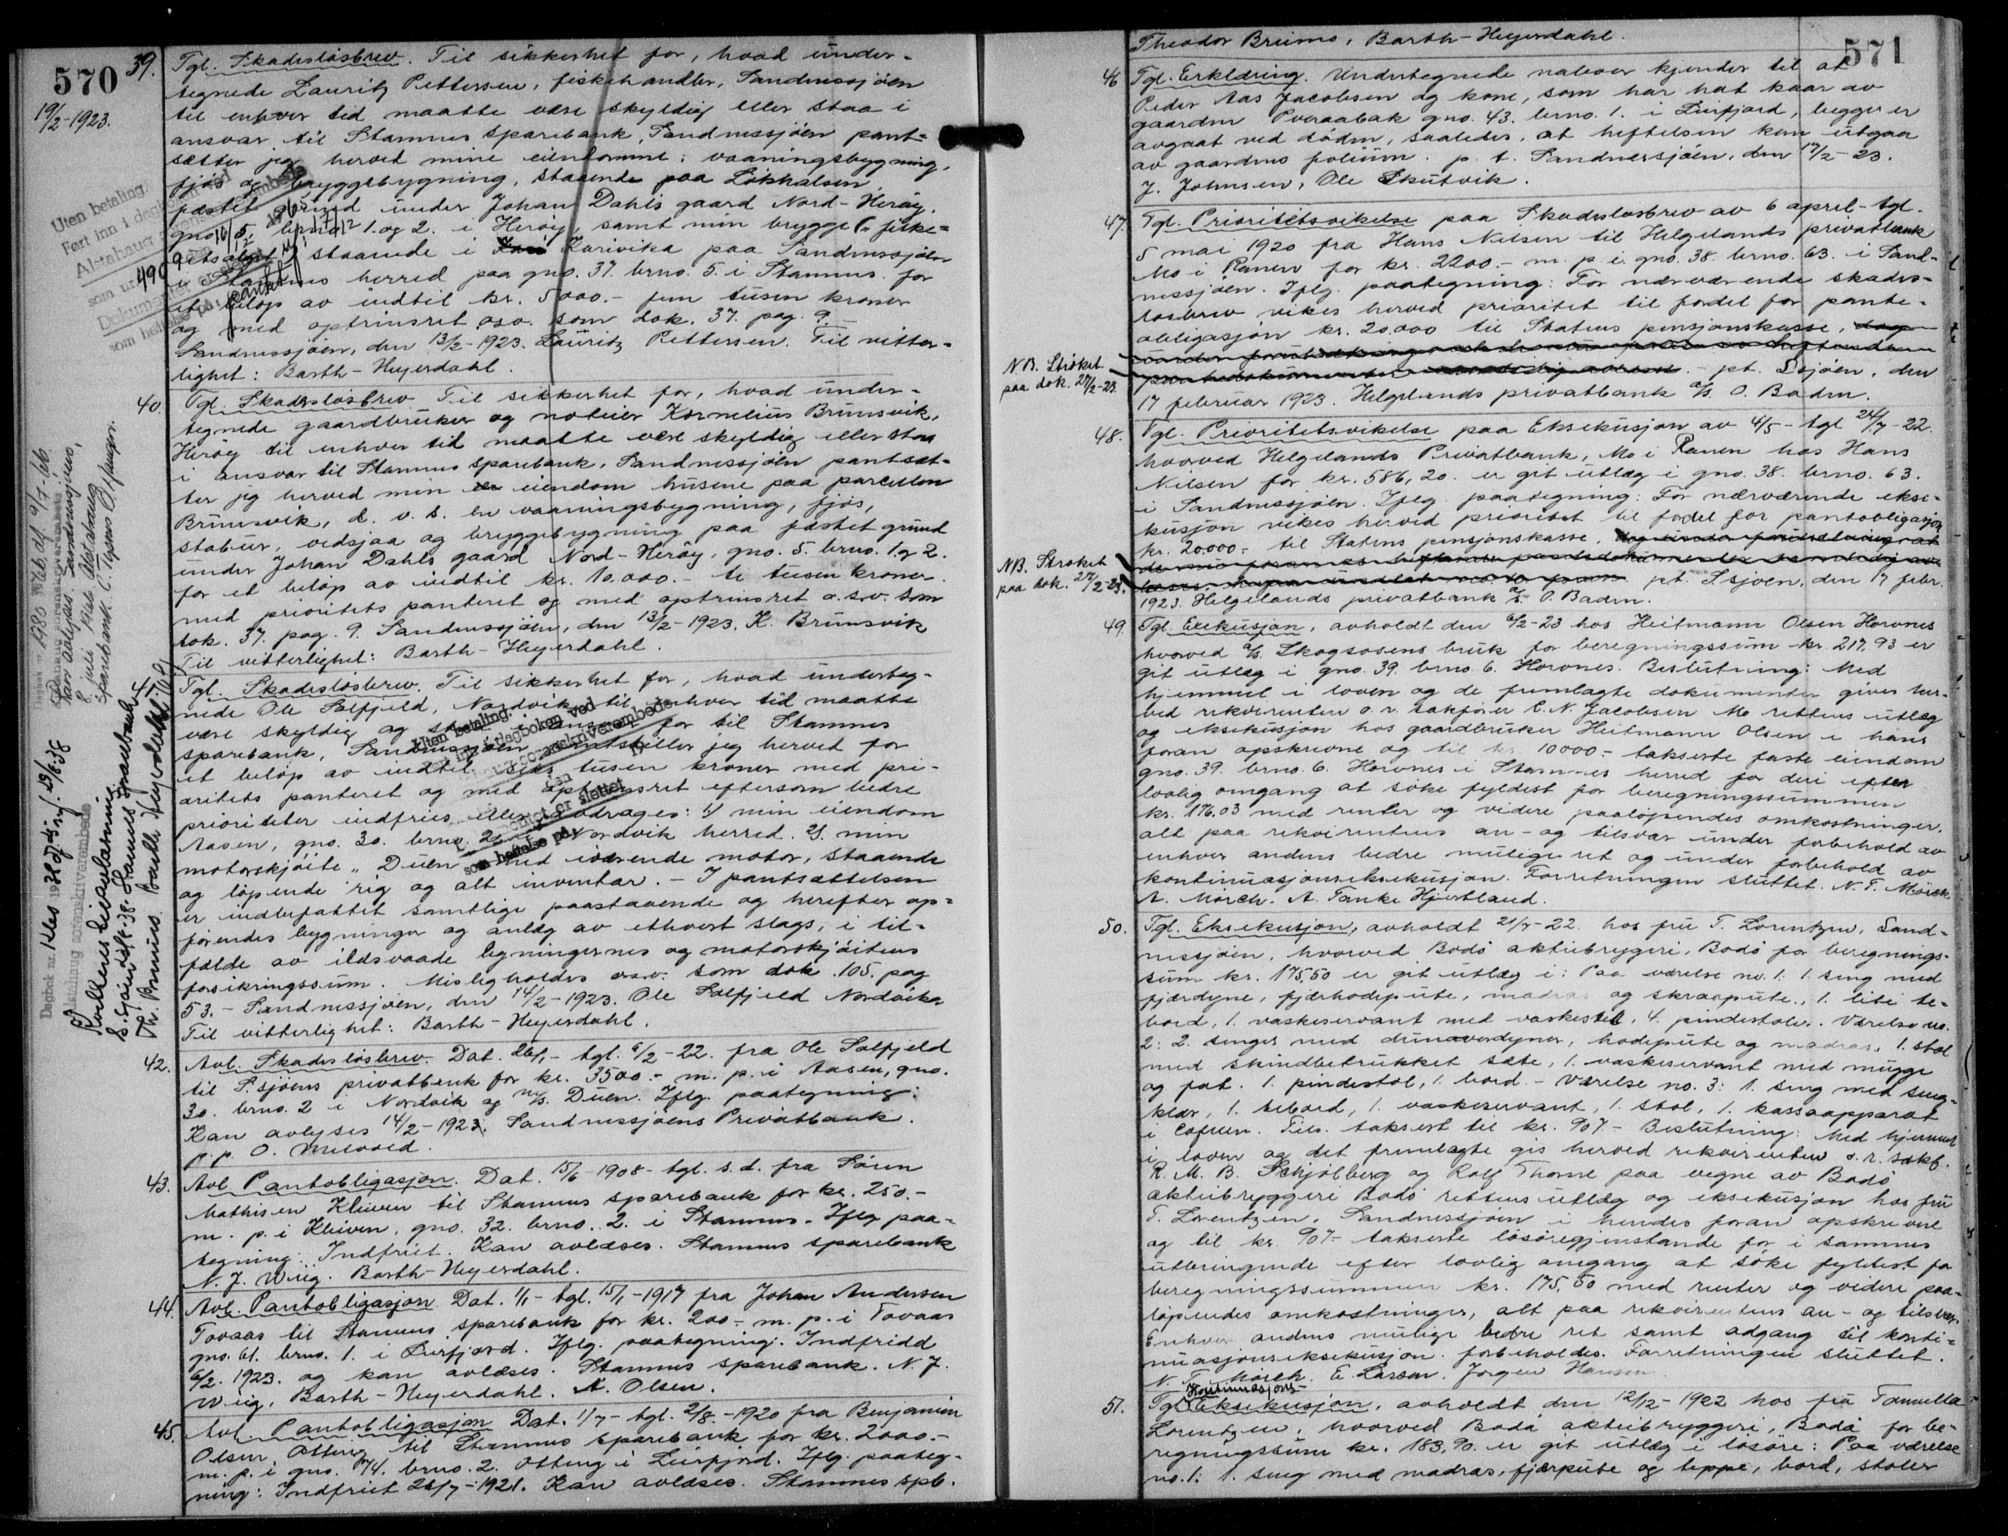 570
19/2-1923.
39. Tgl. Skadesløsbrev. Til sikkerhet for, hvad under-
tegnede Lauritz Pettersen, fiskehandler, Sandnessjøen
til enhver tid maatte være skyldig eller staa i
ansvar til Stamnes sparebank, Sandnessjøen pant-
sætter jeg herved mine eiendomme: vaaningsbygning,
fjøs og bryggebygning, staaende paa Løkhalsen
fæstet grund under Johan Dahls gaard Nord-Herøy,
gno. 5. brno. 1. og 2. i Herøy, samt min brygge
staaende i Karivika paa Sandnessjøen
i Stamnes herred paa gno. 37. brno. 5. i Stamnes for
et beløp av indtil kr. 5000.- fem tusen kroner
og med optrinsret o.s.v. som dok. 37. pag. 9.
Sandnessjøen, den 13/2-1923. Lauritz Pettersen. Til vitter-
lighet: Barth-Heyerdahl.
40. Tgl. Skadesløsbrev. Til sikkerhet for, hvad under-
tegnede gaardbruker og noteier Kornelius Brunsvik,
Herøy til enhver tid maatte være skyldig eller staa
i ansvar til Stamnes sparebank, Sandnessjøen pantsæt-
ter jeg herved min eiendom husene paa parcellen
Brunsvik, d. v. s. en vaaningsbygning, fjøs,
stabur, vedsjaa og bryggebygning paa fæstet grund
under Johan Dahls gaard Nord-Herøy, gno. 5. brno. 1. og 2.
for et beløp av indtil kr. 10.000.- ti tusen kroner
med prioritets panteret og med optrinsret o.s.v. som
dok. 37. pag. 9. Sandnessjøen, den 13/2-1923. K. Brunsvik
Til vitterlighet: Barth-Heyerdahl.
Tgl. Skadesløsbrev. Til sikkerhet for, hvad underteg-
nede Ole Solfjeld, Nordvik til enhver tid maatte
være skyldig og for til Stamnes
sparebank, Sandnessjøen pantstiller jeg herved for
et beløp av indtil seks tusen kroner med pri-
oritets panteret og med optrinsret eftersom bedre
prioriteter indfries eller avdrages: 1) min eiendom
Aasen, gno. 30. brno. 2. i Nordvik herred. 2) min
motorskjøite "Duen" med iværende motor, staaende
og løpende rig og alt inventar. - I pantsættelsen
er indbefattet samtlige paastaaende og herefter op-
førendes bygninger og anlæg av ethvert slags, i til-
fælde av ildsvaade bygningernes og motorskjøitens
forsikringssum. Misligholdes o.s.v. som dok. 105. pag
53.- Sandnessjøen, den 14/2-1923. Ole Solfjeld Nordvika
Til vitterlighet: Barth-Heyerdahl.
42. Avl. Skadesløsbrev. Dat. 26/1- tgl. 6/2-22. fra Ole Solfjeld
til S.sjøens privatbank for kr. 3500.- m. p. i Aasen, gno.
30. brno. 2 i Nordvik og m/s. Duen. Iflg. paategning:
Kan avlyses 14/2-1923. Sandnessjøens Privatbank.
p.p. O. Milvold.
43. Avl. Pantobligasjon. Dat. 15/6-1908- tgl. s. d. fra Søren
Mathisen Kleiven til Stamnes sparebank for kr. 250.-
m. p. i Kleiven, gno. 32. brno. 2. i Stamnes. Iflg paa-
tegning: Indfriet. Kan avlæses. Stamnes sparebank
N. J. Wiig. Barth-Heyerdahl.
44. Avl. Pantobligasjon. Dat. 1/1- tgl. 15/1-1917 fra Johan Andersen
Tovaas til Stamnes sparebank for kr. 200.- m. p. i Tovaas
gno. 61. brno. 1. i Leirfjord. Iflg. paategning: Indfridd
6/2. 1923. og kan avlæses. Stamnes sparebank. N. J.
Wiig, Barth-Heyerdahl. A. Olsen.
45. Avl. Pantobligasjon Dat. 1/7- tgl. 2/8.-1920 fra Benjamin
Olsen Otting til Stamnes sparebank for kr. 2000.-
m. p. i gno. 74. brno. 2. Otting i Leirfjord. Iflg. paateg-
ning: Indfriet 26/7-1921. Kan avlæses. Stamnes spb.
Uten betaling.
Ført inn i dagboken ved
Alstahaug
Uten betaling.
Ført inn i dagboken ved
sorenskriverembede
Dokumentet er slettet
som heftelse på
571
Theodor Breimo, Barth-Heyerdahl.
46. Tgl. Erklæring. Undertegnede naboer kjender til at
Peder Aas Jacobsen og kone, som har hat kaar av
gaarden Sveraabak gno. 43. brno. 1. i Leirfjord, begge er
avgaat ved døden, saaledes, at heftelsen kan utgaa
av gaardens folium. p. t. Sandnessjøen, den 17/2-23.
J. Johnsen, Ole Skutvik.
47. Tgl. Prioritetsvikelse paa Skadesløsbrev av 6 april- tgl.
5 mai 1920 fra Hans Nilsen til Helgelands privatbank
Mo i Ranen for kr. 2200.- m. p. i gno. 38. brno. 63. i Sand-
nessjøen. Iflg. paategning: For nærværende skades-
løsbrev vikes herved prioritet til fordel for pante-
obligasjon kr. 20.000 til Statens pensjonskasse,
pt. Ssjøen, den
17 februar 1923. Helgelands privatbank a/s. O. Baden.
NB. Strøket
paa dok. 27/2-23.
48. Tgl. Prioritetsvikelse paa Eksekusjon av 4/5- tgl 24/7-22.
hvorved Helgelands Privatbank, Mo i Ranen hos Hans
Nilsen for kr. 586,20. er git utlæg i gno. 38. brno. 63.
i Sandnessjøen. Iflg. paategning: For nærværende ekse-
kusjon vikes herved prioritet til fordel for pantobligasjon
kr. 20000.- til Statens pensjonskasse,
pt. Ssjøen, den 17 febr.
1923. Helgelands privatbank a/s. O. Baden.
NB. Strøket
paa dok. 27/2-23.
49. Tgl. Exekusjon, avholdt den 6/2-23 hos Heitmann Olsen Horvnes
hvorved a/s Skogsosens bruk for beregningssum kr. 217,93 er
git utlæg i gno. 39. brno. 6. Horvnes. Beslutning: Med
hjemmel i loven og de fremlagte dokumenter gives her-
ved rekvirenten o. r. sakfører C. N. Jacobsen Mo rettens utlæg
og eksekusjon hos gaardbruker Heitmann Olsen i hans
foran opskrevne og til kr. 10000.- takserte faste eiendom
gno. 39. brno. 6. Horvnes i Stamnes herred for deri efter
lovlig omgang at søke fyldest for beregningssummen
kr. 176.03 med renter og videre paaløpendes omkostninger,
alt paa rekvirentens an- og tilsvar under forbehold av
enhver andens bedre mulige ret og under forbehold av
kontinuasjonseksekusjon. Forretningen sluttet. N. T. Mørch
A. Mørch. A. Tanke Hjertland.
50. Tgl. Eksekusjon, avholdt 21/7-22. hos fru T. Lorentzen, Sand-
nessjøen, hvorved Bodø aktiebryggeri, Bodø for beregnings-
sum kr. 175.50 er git utlæg i: Paa værelse no. 1: 1 seng med
fjærdyne, fjærhodepute, madras og skraapute, 1. lite te-
bord, 1. vaskeservant med vaskestel, 4. pindestoler. Værelse no.
2: 2. senger med dunoverdyner, hodepute og madras, 1. stol
med skindbetrukket sæte, 1. vaskeservant med mugge
og fat. 1. pindestol, 1. bord. - Værelse no. 3: 1. seng med seng-
klær, 1. tebord, 1. vaskeservant, 1. stol, 1. kassaapparat
i cafeen. Tils. taksert til kr. 907- Beslutning: Med hjemmel
i loven og det fremlagte gis herved rekvirenten o. r. sakf.
R. M. B. Schjølberg og Rolf Thorne paa vegne av Bodø
aktiebryggeri Bodø rettens utlæg og eksekusjon hos fru
T. Lorentzen, Sandnessjøen i hendes foran opskrevne
og til kr. 907- takserte løsøregjenstande for i sammes
utbringende efter lovlig omgang at søke fyldest for
beregningssummen kr. 175,50 med renter og videre paa-
løpendes omkostninger, alt paa rekvirentens an- og tilsvar.
Enhver andens mulige bedre ret samt adgang til konti-
nuasjonseksekusjon forbeholdes. Forretningen sluttet.
N. T. Mørch. E Larsen. Jørgen Hansen
51. Tgl. Kontinuasjons-Eksekusjon, avholdt den 12/12-1922 hos fru
Lorentzen, hvorved Bodø aktiebryggeri, Bodø for be-
regningssum kr. 183,90. er git utlæg i løsøre: Paa værelse
no. 1: 1. seng med madras, fjærpute og teppe, bord, stoler